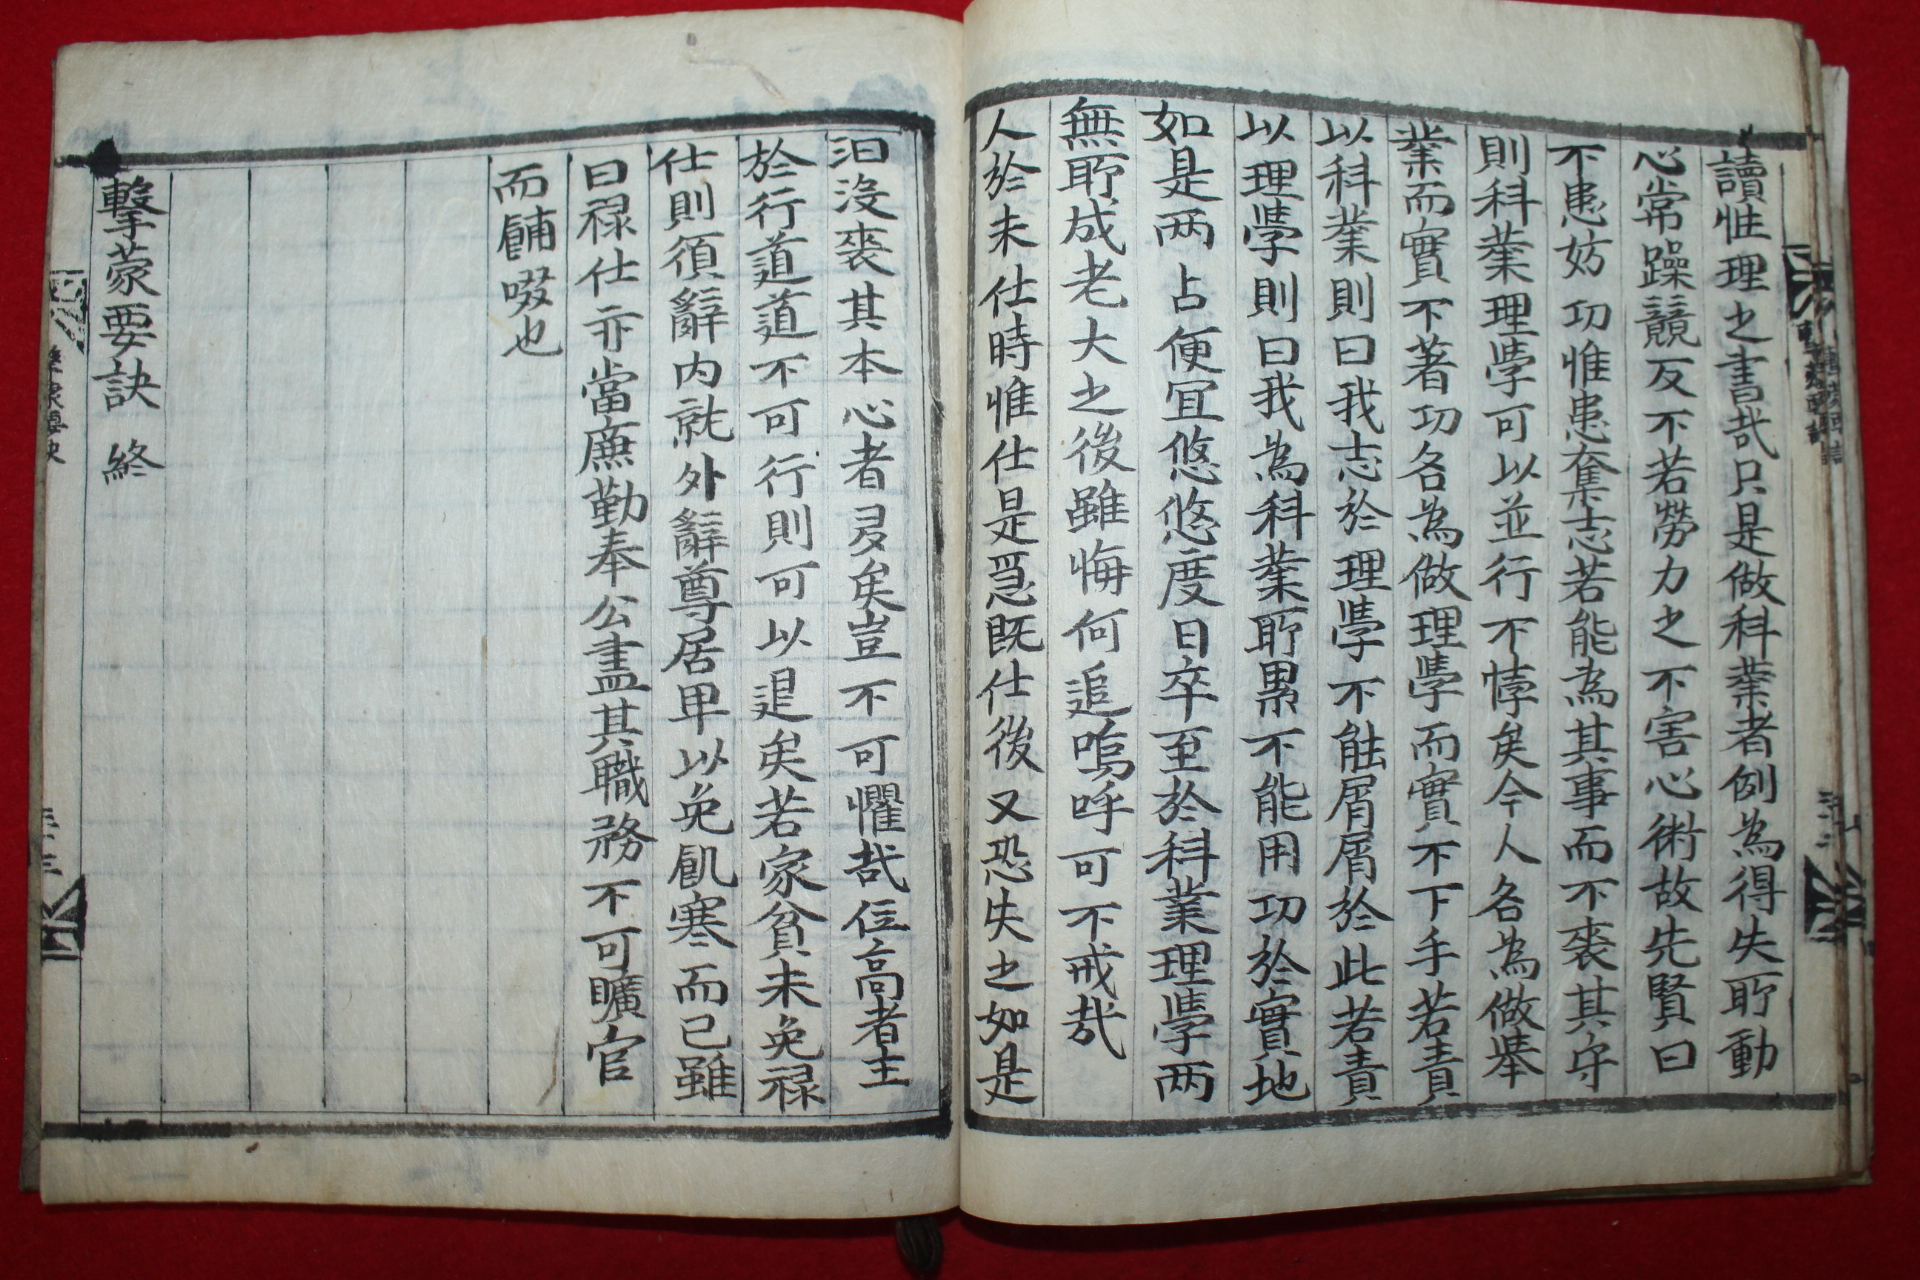 讀性理之書哉只是做科業者例為得失所動
心常躁競反不若勞力之不害心術故先賢曰
不患妨功惟患奪志若能為其事而不喪其守
則科業理學可以並行不悖矣今人各為做擧
業而實不著功各為做理學而實不下手若責
以科業則曰我志於理學不能屑屑於此若責
以理學則曰我為科業所累不能用功於實地
如是两占便宜悠悠度日卒至於科業理學两
無所成老大之後雖悔何追嗚呼可不戒哉
人於未仕時惟仕是急既仕後又恐失之如是
汩沒喪其本心者多矣豈不可懼哉位高者主
於行道道不可行則可以退矣若家貧未免禄
仕則須辭内就外辭尊居卑以免飢寒而已雖
曰禄仕亦當廉勤奉公盡其職務不可曠官
而餔啜也
擊蒙要訣 終